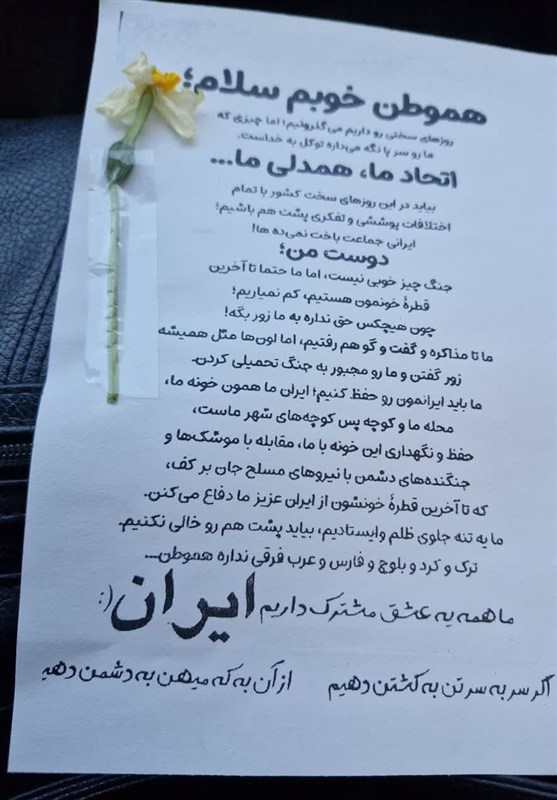 هموطن خوبم سلام؛
روزهای سختی رو داریم می‌گذرونیم؛ اما چیزی که
ما رو سر پا نگه می‌داره توکل به خداست.
اتحاد ما، همدلی ما...
بیاید در این روزهای سخت کشور با تمام
اختلافات پوششی و تفکری پشت هم باشیم؛
ایرانی جماعت باخت نمی‌ده ها!
دوست من؛
جنگ چیز خوبی نیست، اما ما حتما تا آخرین
قطرهٔ خونمون هستیم، کم نمیاریم؛
چون هیچکس حق نداره به ما زور بگه!
ما تا مذاکره و گفت و گو هم رفتیم، اما اون‌ها مثل همیشه
زور گفتن و ما رو مجبور به جنگ تحمیلی کردن.
ما باید ایرانمون رو حفظ کنیم؛ ایران ما همون خونه ما،
محله ما و کوچه پس کوچه‌های شهر ماست،
حفظ و نگهداری این خونه با ما، مقابله با موشک‌ها و
جنگنده‌های دشمن با نیروهای مسلح جان بر کف،
که تا آخرین قطرهٔ خونشون از ایران عزیز ما دفاع می‌کنن.
ما یه تنه جلوی ظلم وایستادیم، بیاید پشت هم رو خالی نکنیم.
ترک و کرد و بلوچ و فارس و عرب فرقی نداره هموطن...
ما همه یه عشق مشترک داریم ایران (:
اگر سر به سر تن به کشتن دهیم از آن به که میهن به دشمن دهی